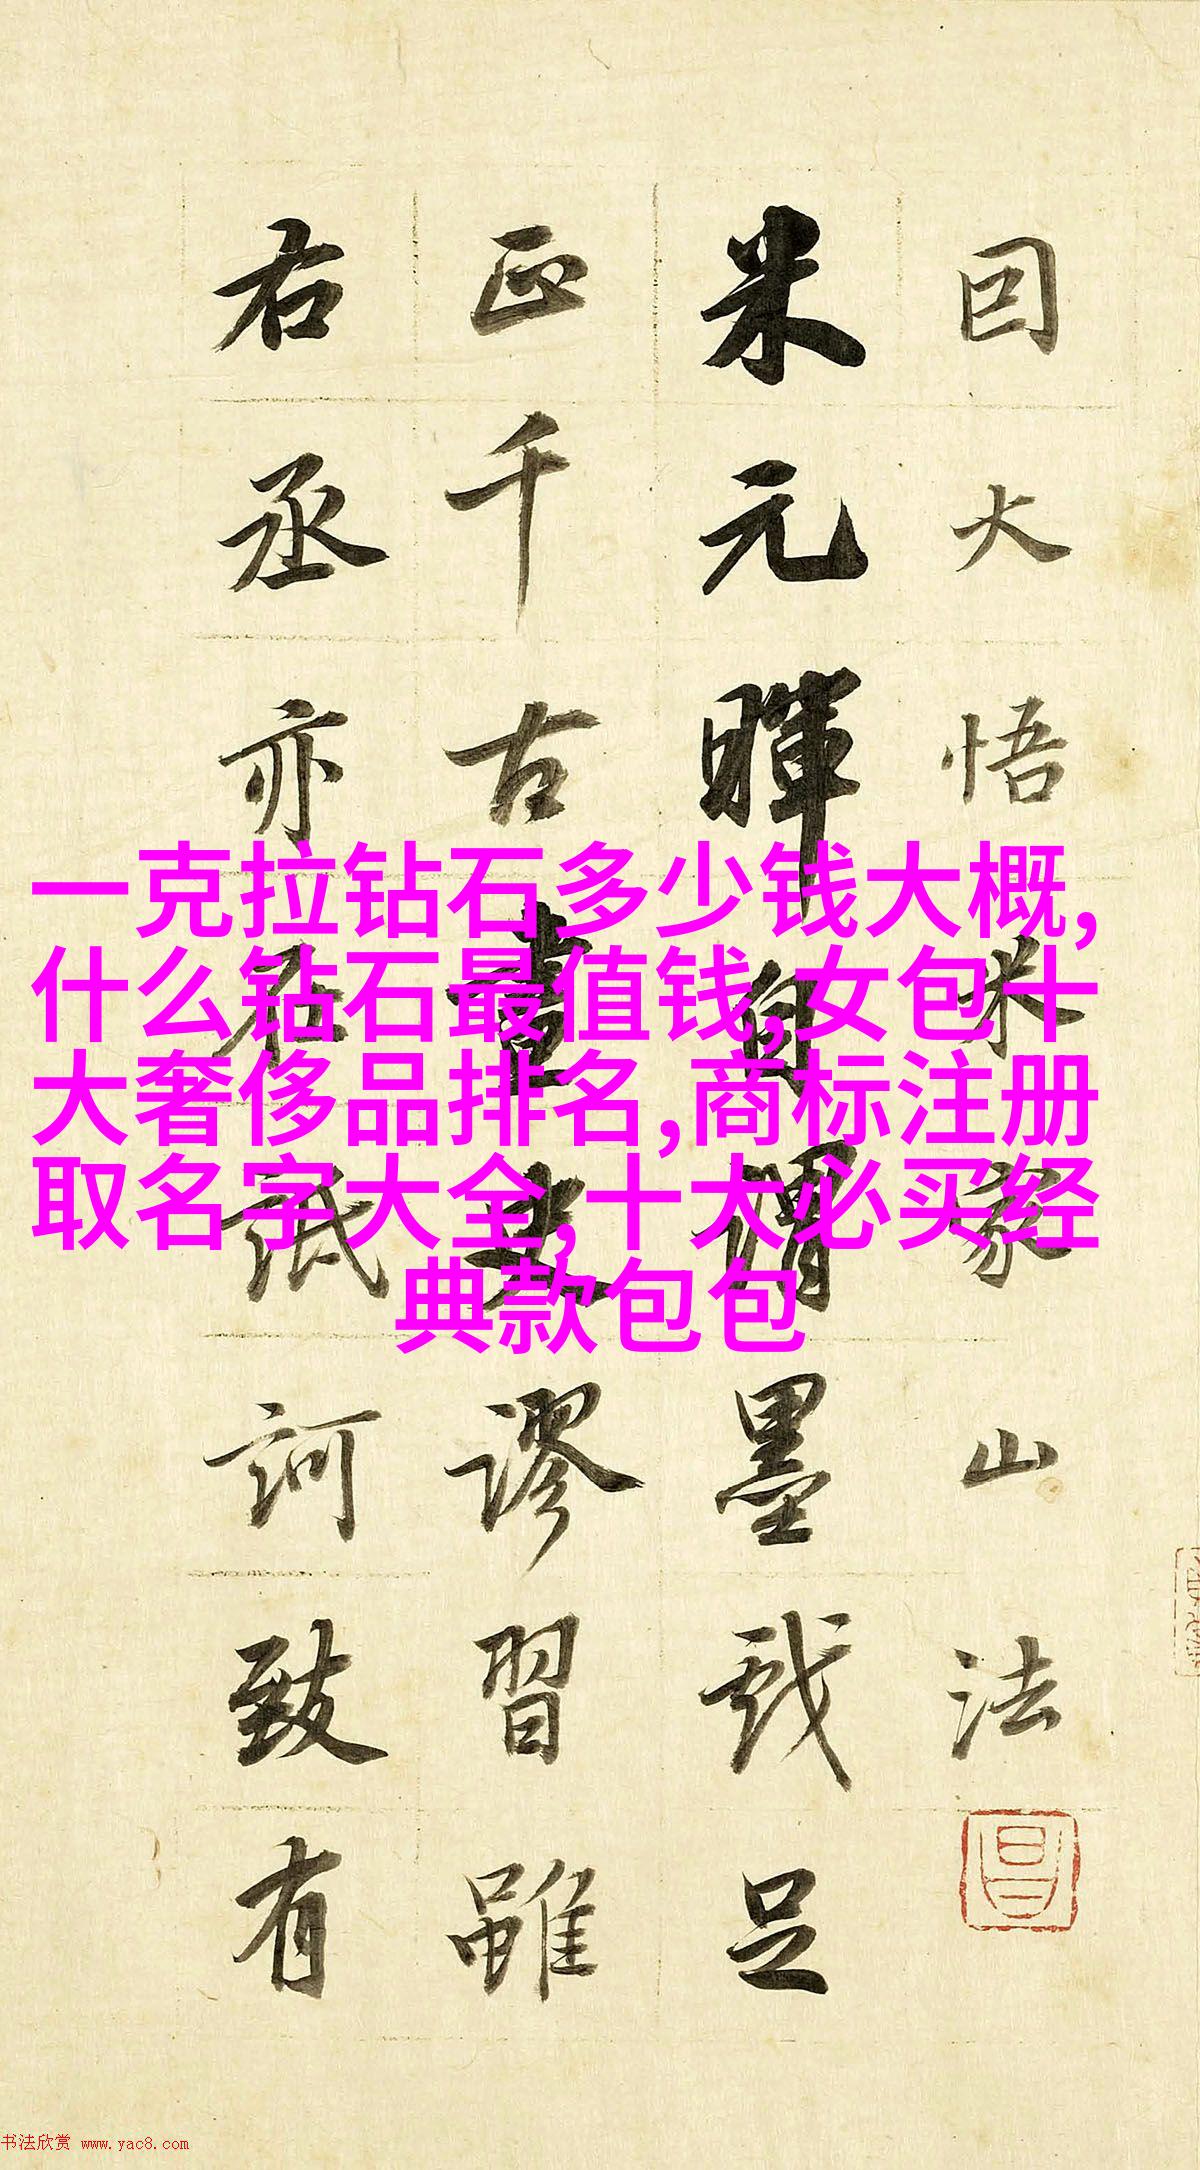 因大悟米家山法
米元暉自謂墨戲足
正千古畫史謬習雖
右丞亦在詆訶致有
一克拉钻石多少钱大概,
什么钻石最值钱,女包十
大奢侈品排名,商标注册
取名字大全,十大必买经
典款包包
书法欣赏 www.yac8.com